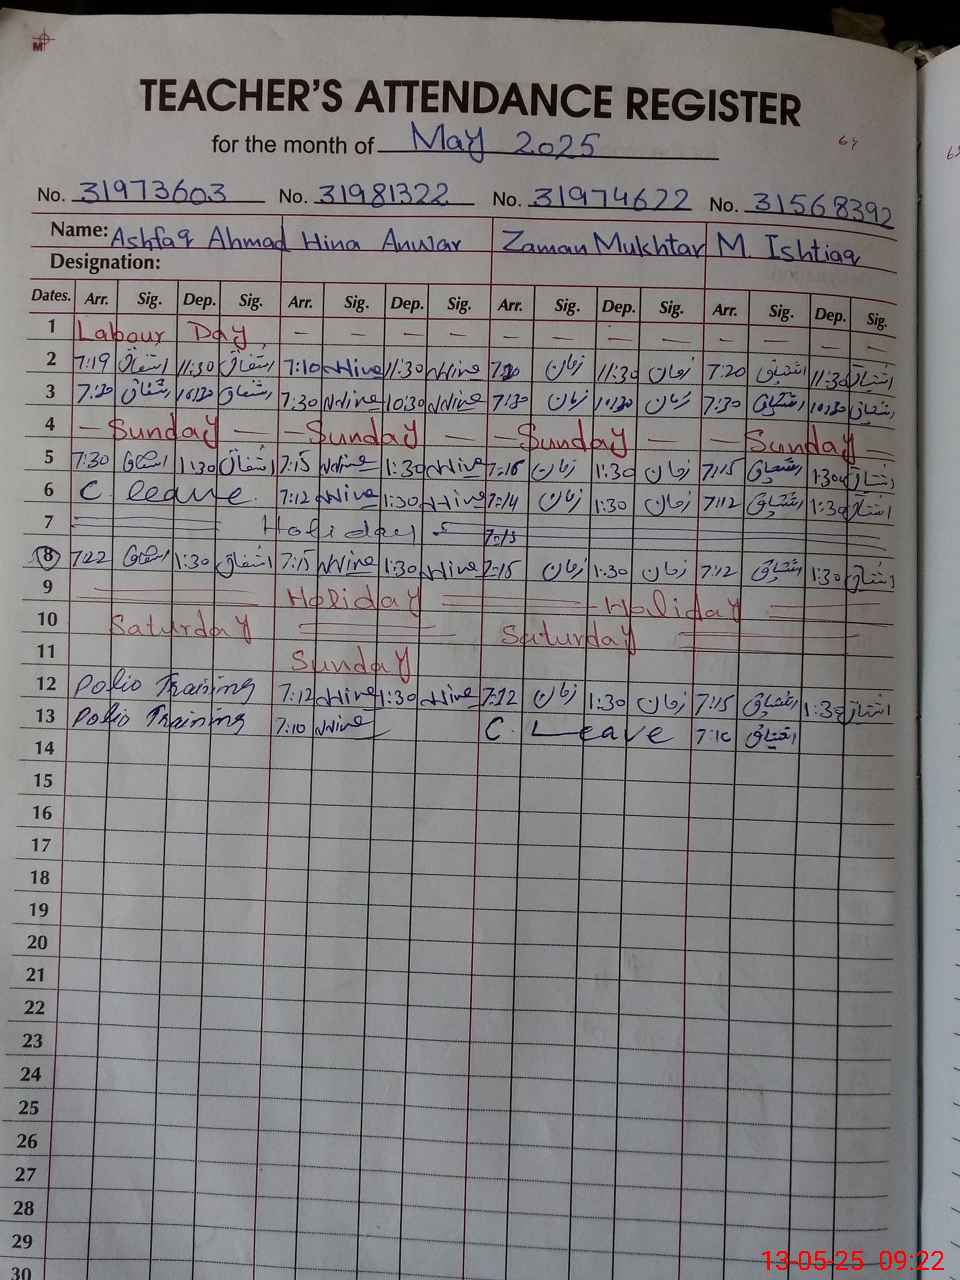 M
TEACHER'S ATTENDANCE REGISTER
for the month of May 2025
64
No. 31973603 No. 31981322 No. 31974622 No. 31568392
Name: Ashfaq Ahmad Hina Anwar Zaman Mukhtar M. Ishtiaq
Designation:
Dates. Arr. Sig. Dep. Sig. Arr. Sig. Dep. Sig. Arr. Sig. Dep. Sig. Arr. Sig. Dep. Sig.
1 Labour Day — — — — — — — — — — — —
2 7:19 اشفاق 11:30 اشفاق 7:10 11:30 7:20 زمان 11:30 زمان 7:20 اشتیاق 11:30 اشتیاق
3 7:30 اشفاق 10:30 اشفاق 7:30 10:30 7:30 زمان 10:30 زمان 7:30 اشتیاق 10:30 اشتیاق
4 — Sunday — — Sunday — — Sunday — — Sunday —
5 7:30 اشفاق 1:30 اشفاق 7:15 1:30 7:16 زمان 1:30 زمان 7:15 اشتیاق 1:30 اشتیاق
6 C. leave. 7:12 1:30 7:14 زمان 1:30 زمان 7:12 اشتیاق 1:30 اشتیاق
7 Holiday 7:15
8 7:22 اشفاق 1:30 اشفاق 7:15 1:30 7:15 زمان 1:30 زمان 7:12 اشتیاق 1:30 اشتیاق
9 Holiday Holiday
10 Saturday Saturday
11 Sunday
12 Polio Training 7:12 1:30 7:12 زمان 1:30 زمان 7:15 اشتیاق 1:30 اشتیاق
13 Polio Training 7:10 C. Leave 7:10 اشتیاق
14
15
16
17
18
19
20
21
22
23
24
25
26
27
28
29
30
13-05-25 09:22